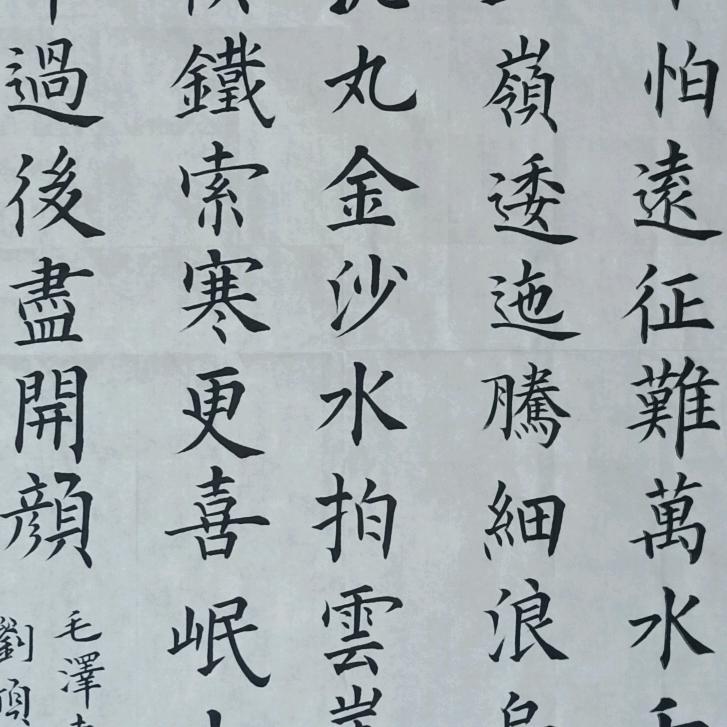 怕遠征難萬水
嶺逶迤騰細浪
丸金沙水拍雲
鐵索寒更喜岷
過後盡開顏
毛澤
劉